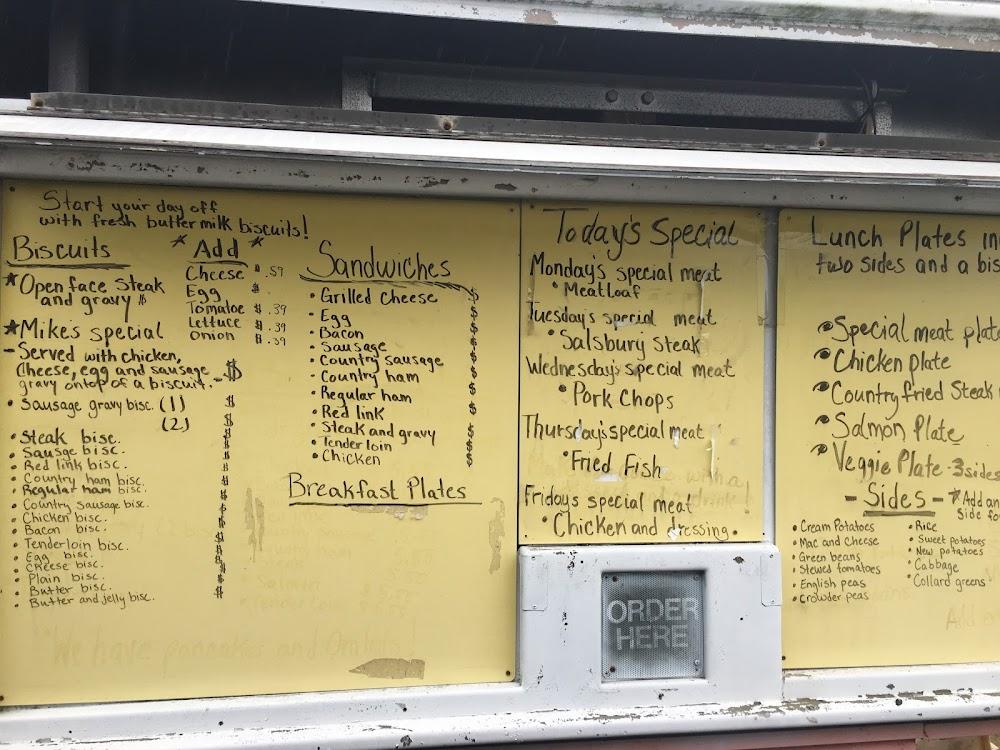 Start your day off
with fresh butter milk biscuits!
Biscuits
*Open face steak
and gravy $
*Mike's special
- Served with chicken,
Cheese, egg and sausage
gravy ontop of a biscuit. - $
• Sausage gravy bisc. (1) $
(2) $
• Steak bisc. $
• Sausge bisc. $
• Red link bisc. $
• Country ham bisc. $
• Regular ham bisc. $
• Country sausage bisc. $
• Chicken bisc. $
• Bacon bisc. $
• Tenderloin bisc. $
• Egg bisc. $
• Cheese bisc. $
• Plain bisc. $
• Butter bisc. $
• Butter and jelly bisc. $
* Add *
Cheese $ .59
Egg $ .
Tomatoe $ .39
Lettuce $ .39
Onion $ .39
Sandwiches
• Grilled Cheese $
• Egg $
• Bacon $
• Sausage $
• Country sausage $
• Country ham $
• Regular ham $
• Red link $
• Steak and gravy $
• Tenderloin $
• Chicken $
Breakfast Plates
We have pancakes and
Today's Special
Monday's special meat
• Meatloaf
Tuesday's special meat
• Salsbury Steak
Wednesday's special meat
• Pork Chops
Thursday's special meat
• Fried Fish
Friday's special meat
• Chicken and dressing.
ORDER
HERE
Lunch Plates in
two sides and a bis
• Special meat plate
• Chicken plate
• Country fried Steak
• Salmon Plate
• Veggie Plate - 3 sides
- Sides - *Add an
Side fo
• Cream Potatoes
• Mac and Cheese
• Green beans
• Stewed tomatoes
• English peas
• Crowder peas
• Rice
• Sweet potatoes
• New potatoes
• Cabbage
• Collard greens